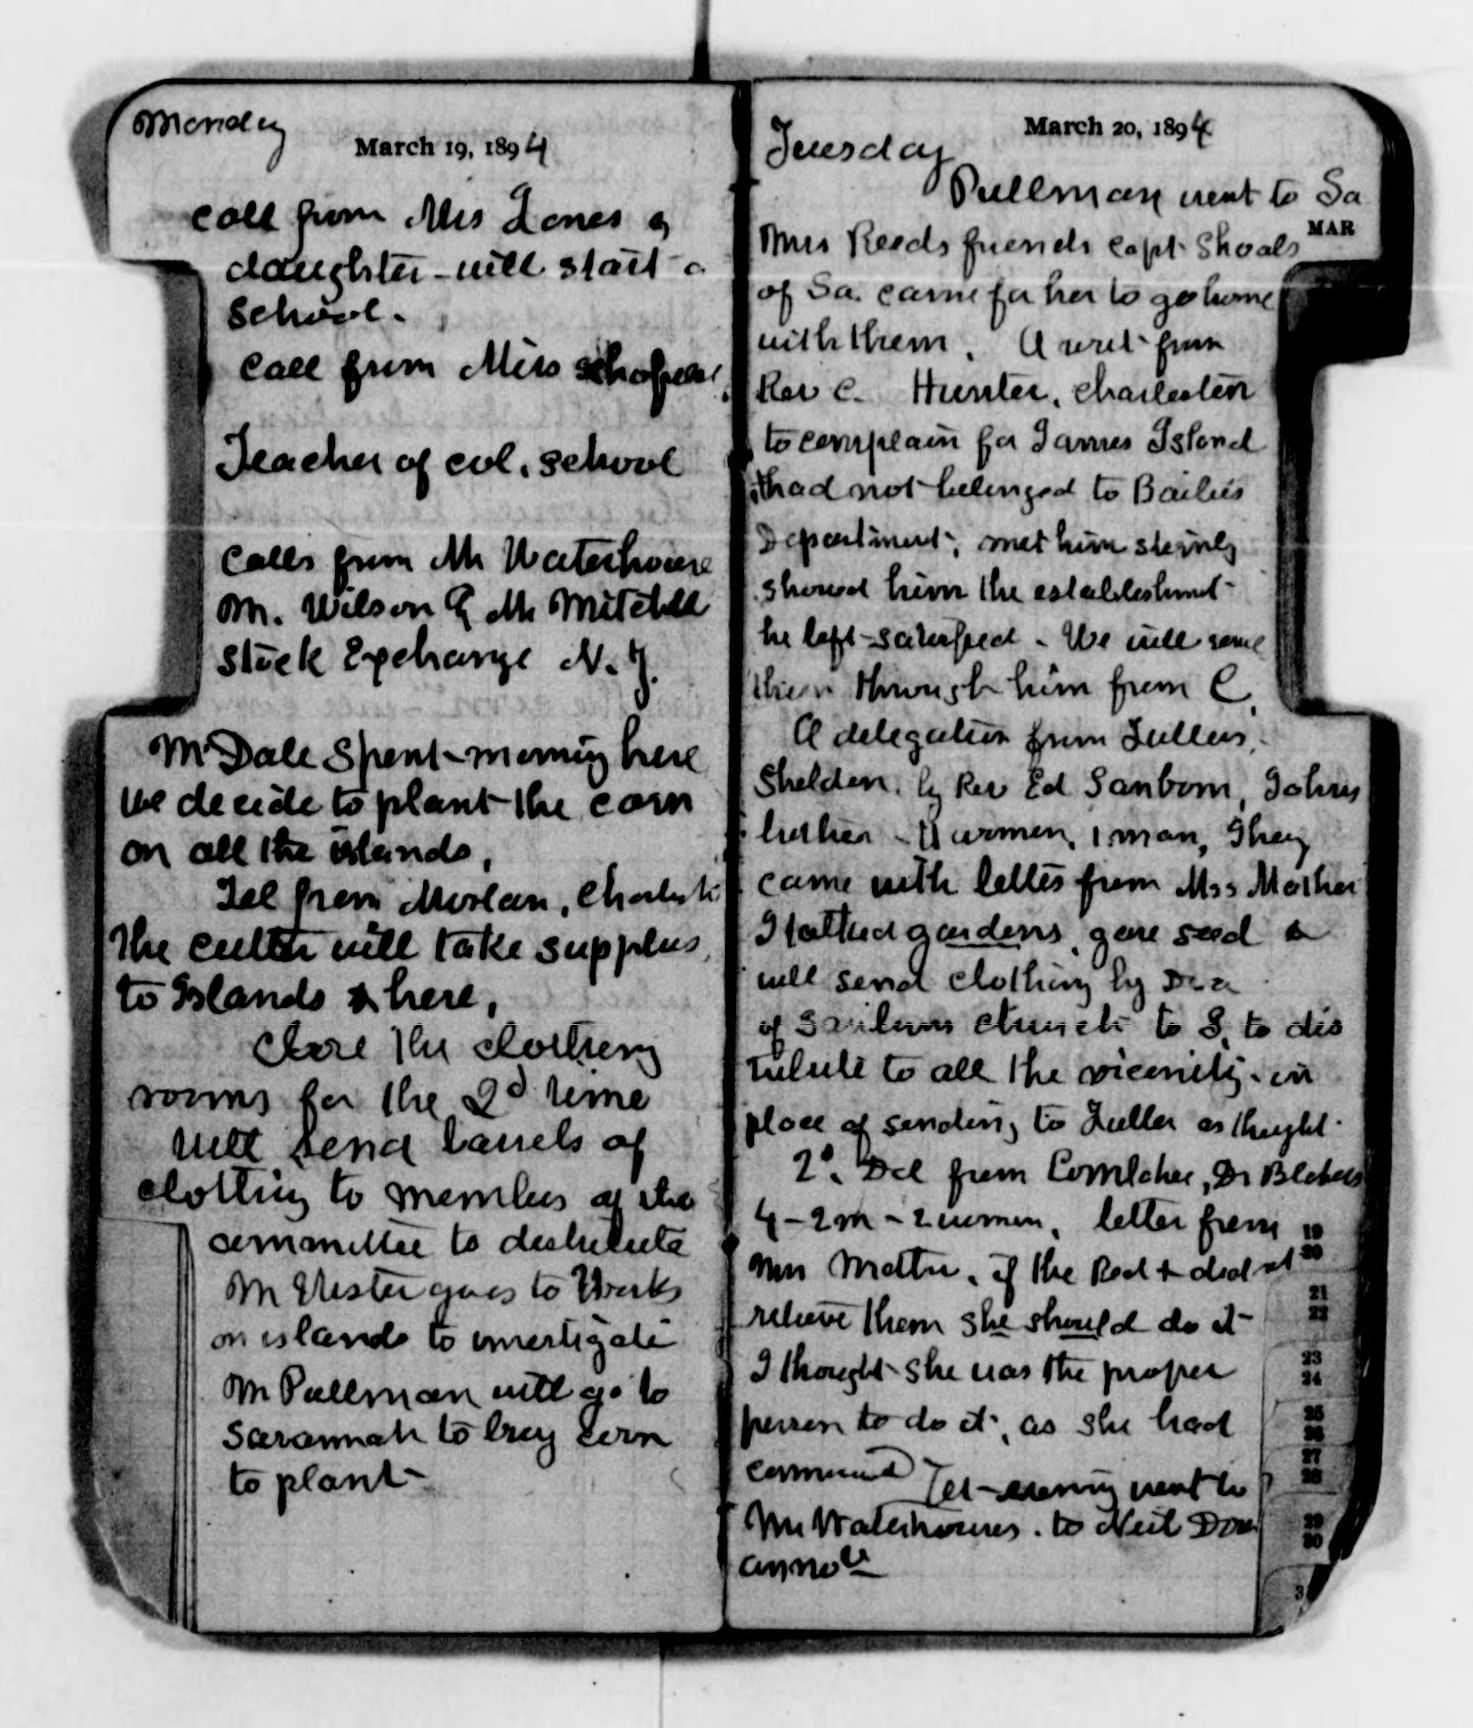 Monday
March 19, 1894
Call from Mrs Jones &
daughter - will start a
School.
Call from Miss
Teacher of col. school
Calls from Mr Waterhouse
Mr. Wilson & Mr Mitchell
Stock Exchange N. Y.
Mr Dale Spent morning here
We decide to plant the corn
on all the islands,
Tel from Morlan,
The cutter will take supplies
to Islands & here,
Close the clothing
rooms for the 2d time
Will send barrels of
clothing to members of the
committee to distribute
Mr goes to
on islands to investigate
Mr Pullman will go to
Savannah to buy corn
to plant
Tuesday
March 20, 1894
Pullman went to Sa
MAR
Mrs Reeds friends Capt Shoals
of Sa. came for her to go home
with them. A visit from
Rev C. Hunter, Charleston
to complain for James Island
had not belonged to
Department, met him sternly
showed him the establishment
he left satisfied - We will
them through him from C.
A delegation from
Sheldon, by Rev Ed Sanborn, Johns
brother - 11 women, 1 man, They
came with letters from Mrs Mather
I talked gardens, gave seed &
will send clothing by
of church to S. to dis
tribute to all the vicinity - in
place of sending to Fuller as thought.
2d. Del from
4 - 2 m - 2 women, letter from
Mrs Mather, if the Red + did not
relieve them she should do it -
I thought she was the proper
person to do it, as she had
evening went to
Mr Waterhouses. to Neil Dow
19
20
21
22
23
24
25
26
27
28
29
30
3